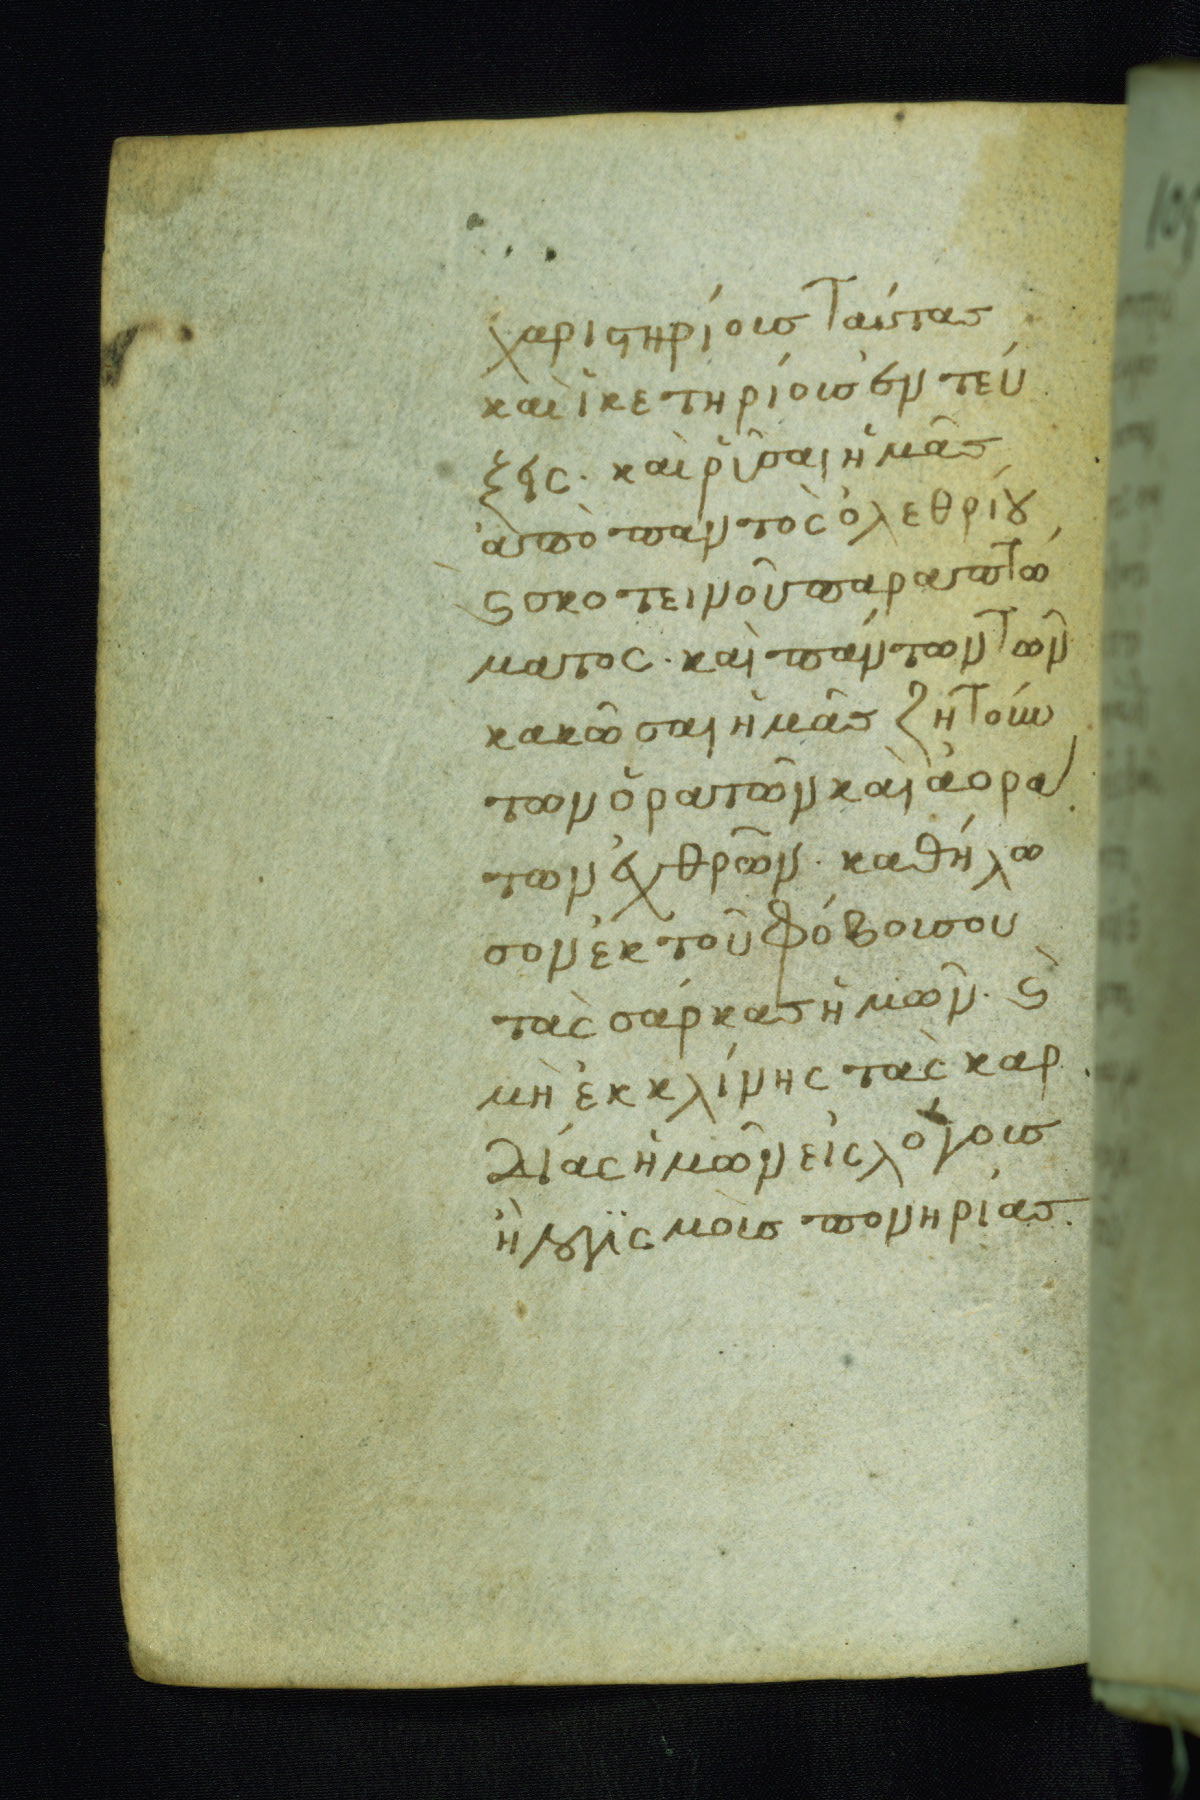 χαριστηρίοις ταύτας
καὶ ἱκετηρίοις ἐντεύ
ξεις. καὶ ῥῦσαι ἡμᾶς
ἀπὸ παντὸς ὀλεθρίου
ϛ σκοτεινοῦ παραπτώ
ματος. καὶ πάντων τῶν
κακῶσαι ἡμᾶς ζητούν
των ὁρατῶν καὶ ἀορά
των ἐχθρῶν. καθήλω
σον ἐκ τοῦ φόβου σου
τὰς σάρκας ἡμῶν. ϛ
μὴ ἐκκλίνης τὰς καρ
δίας ἡμῶν εἰς λόγους
ἢ λογισμοὺς πονηρίας.